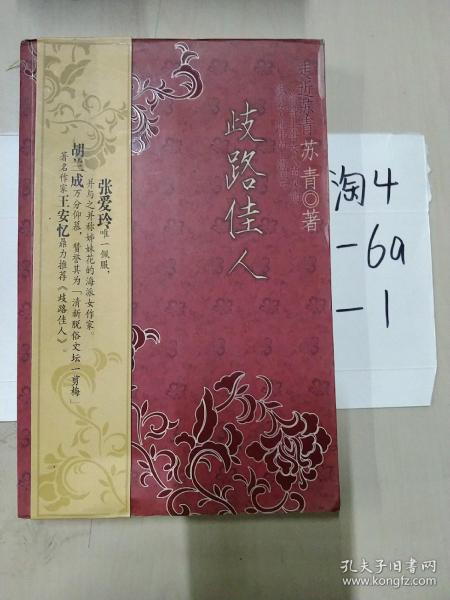 走近苏青
苏青◎著
歧路佳人
张爱玲唯一佩服，
并与之并称姊妹花的海派女作家。
胡兰成万分仰慕，赞誉其为「清新脱俗文坛一剪梅」
著名作家王安忆鼎力推荐《歧路佳人》。
淘4
-6a
-1
孔夫子旧书网
www.kongfz.com